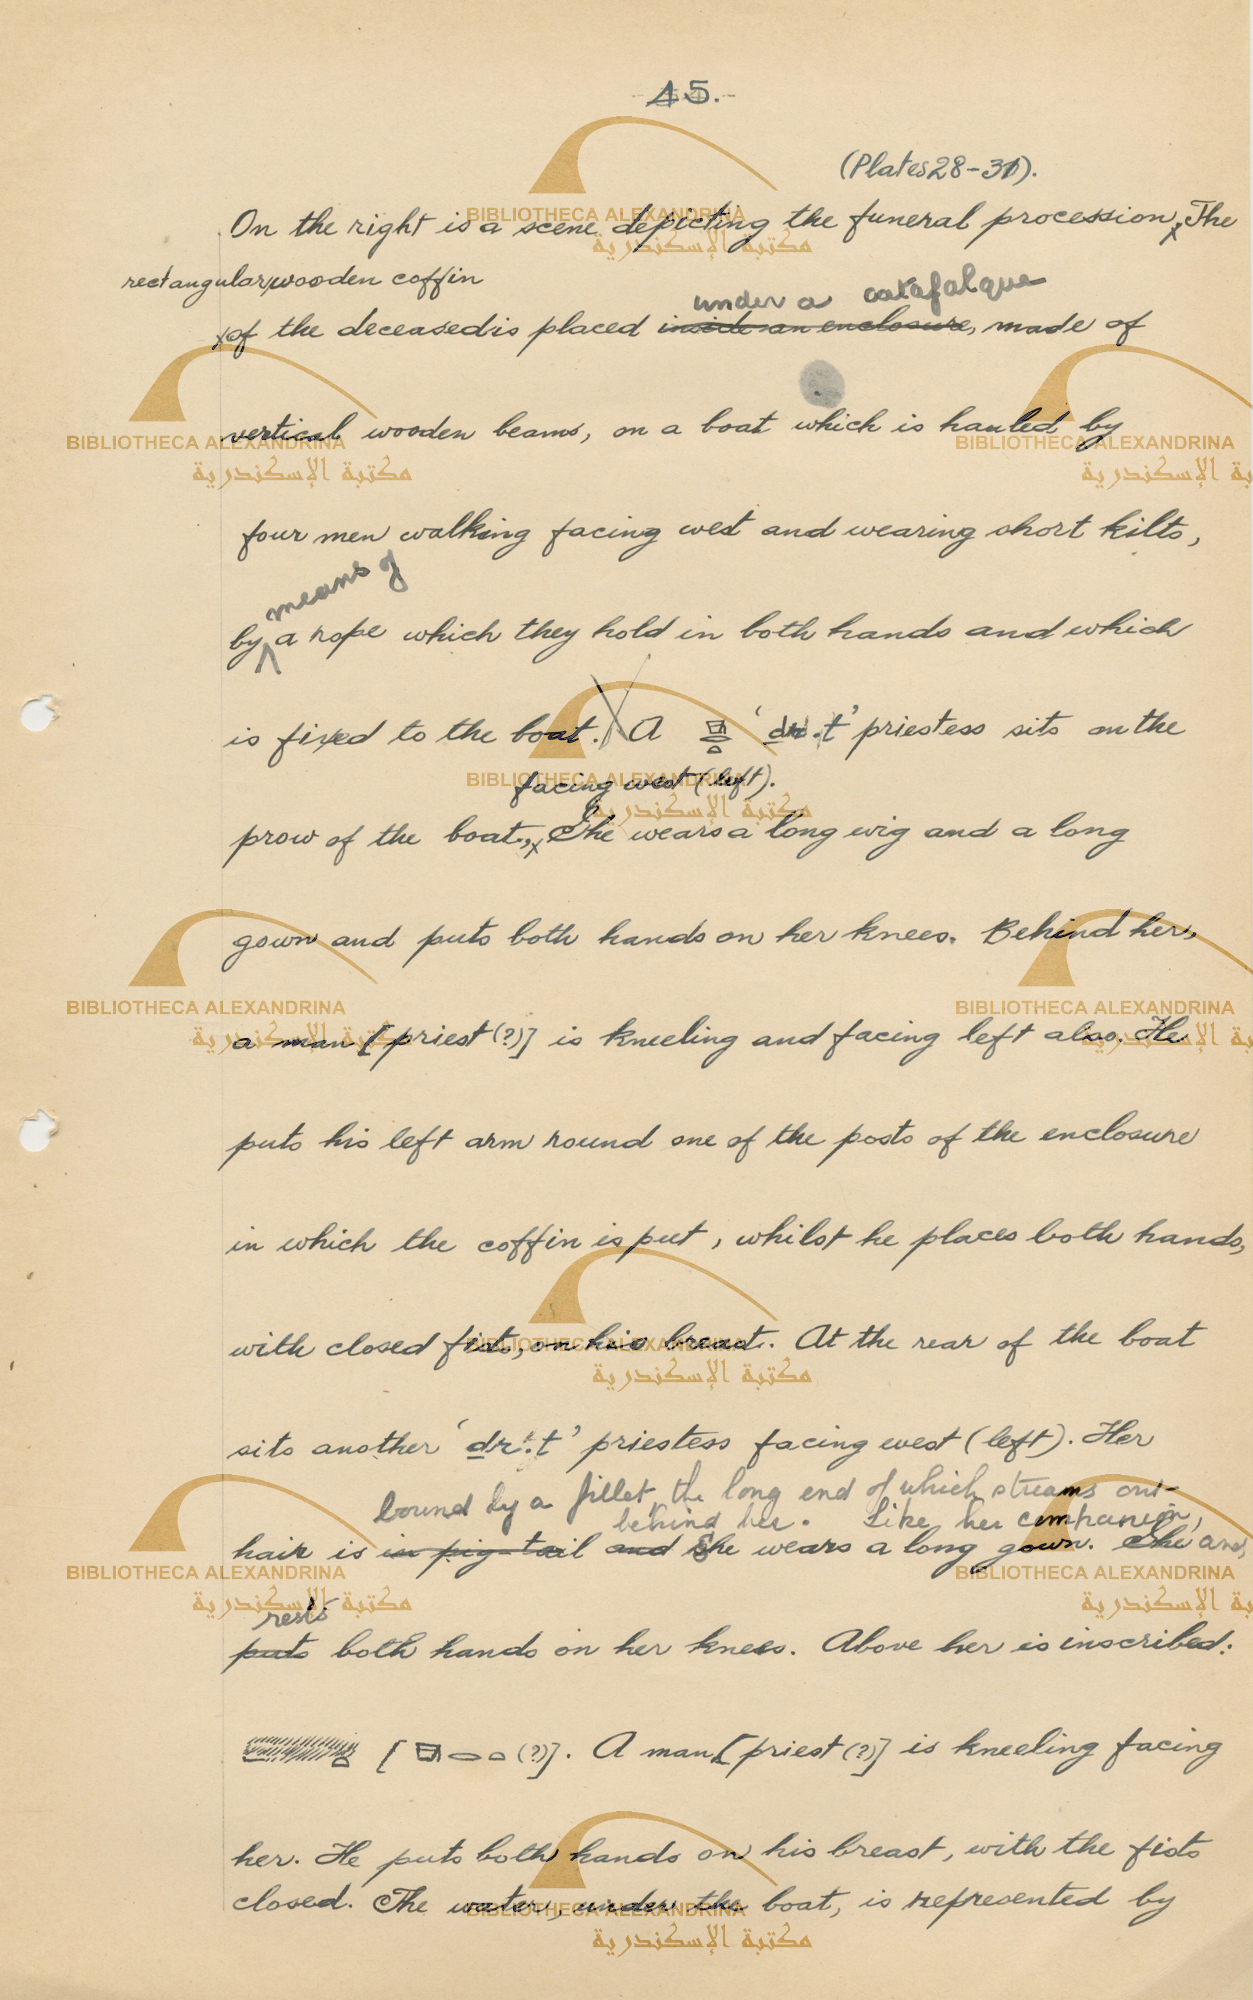 45.
(Plates 28-31).
On the right is a scene depicting the funeral procession, The
rectangular, wooden coffin
under a catafalque
of the deceased is placed inside an enclosure, made of
vertical wooden beams, on a boat which is hauled by
four men walking facing west and wearing short kilts,
means of
by a rope which they hold in both hands and which
is fixed to the boat. A 'dr.t' priestess sits on the
facing west (left).
prow of the boat., She wears a long wig and a long
gown and puts both hands on her knees. Behind her,
a man [priest (?)] is kneeling and facing left also. He
puts his left arm round one of the posts of the enclosure
in which the coffin is put, whilst he places both hands,
with closed fists, on his breast. At the rear of the boat
sits another 'dr.t' priestess facing west (left). Her
bound by a fillet, the long end of which streams out
behind her. Like her companion,
hair is in pig-tail and She wears a long gown. She and
rests
puts both hands on her knees. Above her is inscribed:
[ (?)]. A man [priest (?)] is kneeling facing
her. He puts both hands on his breast, with the fists
closed. The water, under the boat, is represented by
BIBLIOTHECA ALEXANDRINA
مكتبة الإسكندرية